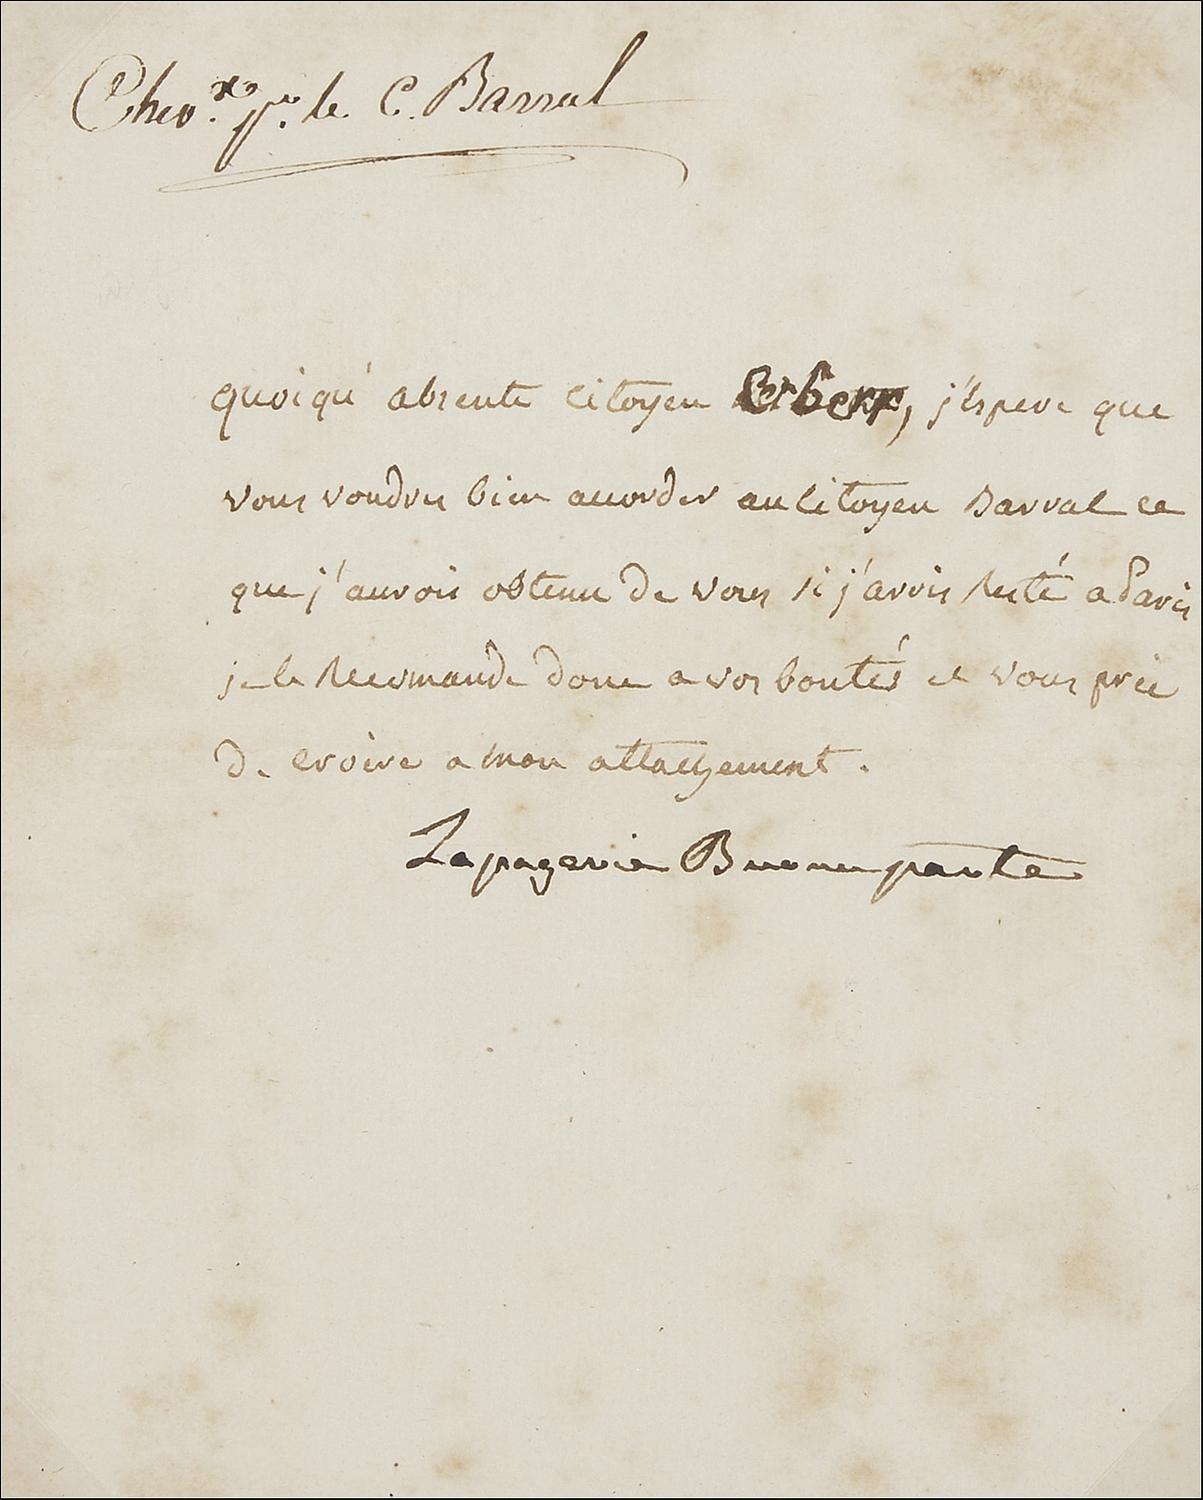 Chev.x pr. le C. Barral
quoiqu'absente citoyen Cerberr, j'espere que
vous voudres bien accorder au citoyen Barral ce
que j'aurois obtenu de vous si j'avois resté a Paris
je le recomande donc a vos boutés et vous prie
de croire a mon attachement.
Lapagerie Buonaparte